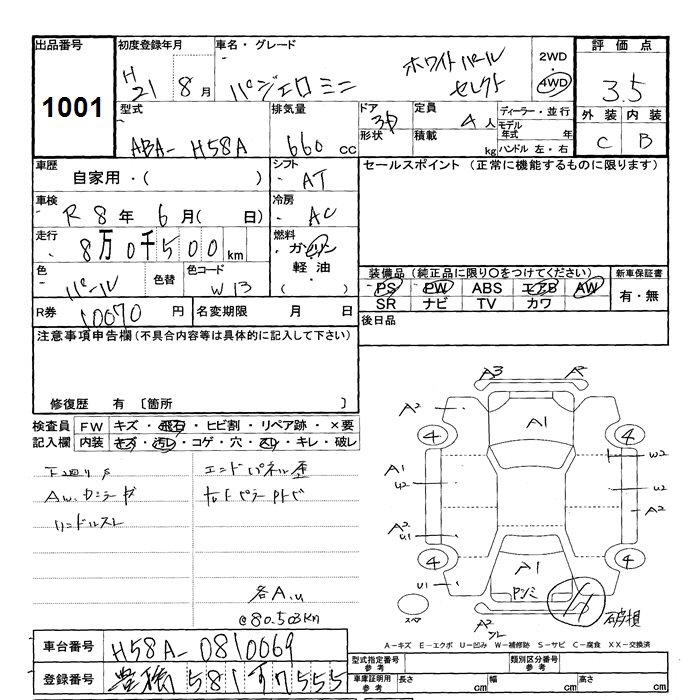 出品番号 初度登録年月 車名・グレード 2WD ・ 4WD 評価点
1001 H21 8月 パジェロミニ ホワイトパールセレクト 3.5
型式 排気量 ドア 定員 ディーラー・並行 外装 内装
ABA-H58A 660 cc 3D 4人 モデル年式 年 C B
形状 積載 kg ハンドル 左・右
車歴 自家用・( ) シフト AT セールスポイント (正常に機能するものに限ります)
車検 R8年 6月( 日) 冷房 AC
走行 8万0千500km 燃料 ガソリン 軽油 ( )
色 パール 色替 色コード W13
装備品 (純正品に限り○をつけてください) 新車保証書
PS PW ABS エアB AW 有・無
SR ナビ TV カワ
R券 10070円 名変期限 月 日 後日品
注意事項申告欄 (不具合内容等は具体的に記入して下さい)
修復歴 有 〔箇所 〕
検査員 FW キズ・飛石・ヒビ割・リペア跡・×要
記入欄 内装 キズ・汚レ・コゲ・穴・スレ・キレ・破レ
下廻りS エンドパネル歪
AW.カンラーダ
ハンドルスレ
各A.U
@80.503Kn
A3 A2
A2 A1
4 4
A1 W2
U2 U2
A2 A2
U1
4 4
U1 A1
スペア A2 破損
A-キズ E-エクボ U-凹み W-補修跡 S-サビ C-腐食 XX-交換済
車台番号 H58A-0810069
型式指定番号 参考 類別区分番号 参考
登録番号 豊橋 581 す 7555
車庫証明用 参考 長さ cm 幅 cm 高さ cm